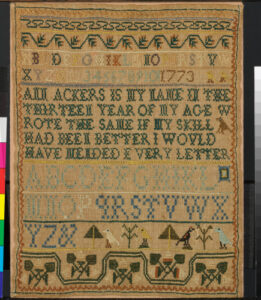 B D G I K L O R S V
X Y Z 123456789 1773
ANN ACKERS IS MY NAME IN THE
THIRTEEN YEAR OF MY AGE W
ROTE THE SAME IF MY SKILL
HAD BEEN BETTER I WOULD
HAVE MENDED EVERY LETTER
ABCDEFGHIKL
MNOP QRSTVWX
YZ&